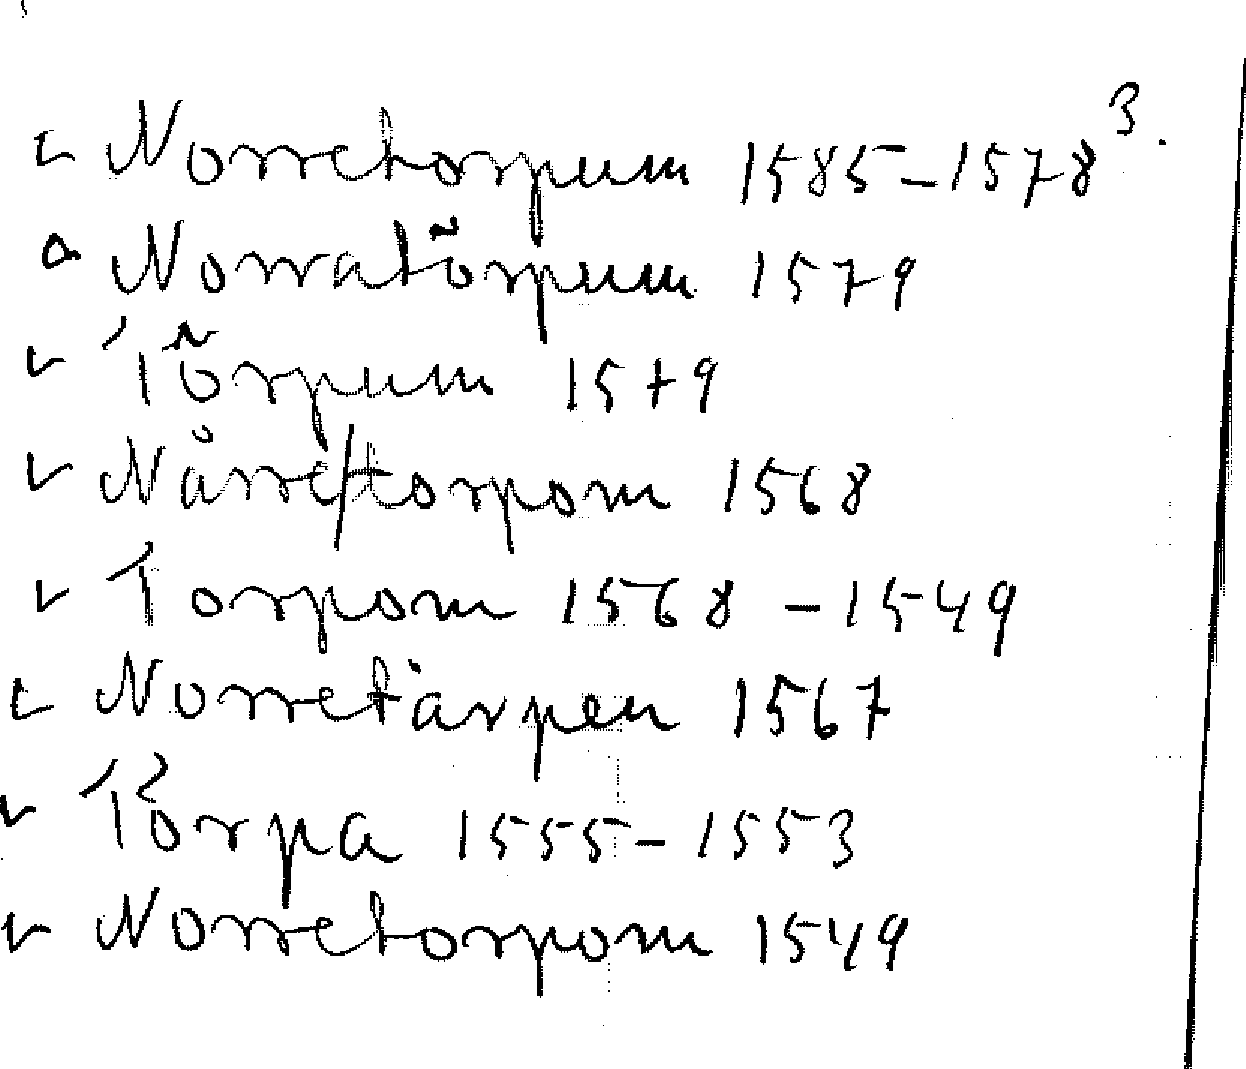 3.
Norretorpum 1585-1578
Norratõrpum 1579
Tõrpum 1579
Nårre/torpom 1568
Torpom 1568 - 1549
Norretårpen 1567
Tõrpa 1555-1553
Norretorpom 1549